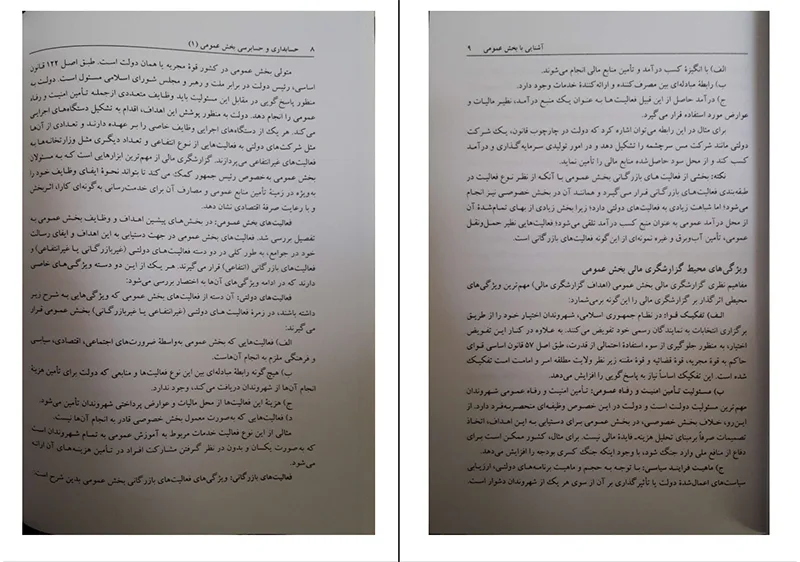 ۸ حسابداری و حسابرسی بخش عمومی (۱)
متولی بخش عمومی در کشور قوة مجریه یا همان دولت است. طبق اصل ۱۲۲ قانون
اساسی، رئیس دولت در برابر ملت و رهبر و مجلس شورای اسلامی مسئول است. دولت به
منظور پاسخ‌گویی در مقابل این مسئولیت باید وظایف متعددی ازجمله تأمین امنیت و رفاه
عمومی را انجام دهد. دولت به منظور پوشش این اهداف، اقدام به تشکیل دستگاه‌های اجرایی
می‌کند. هر یک از دستگاه‌های اجرایی وظایف خاصی را بر عهده دارند و تعدادی از آن‌ها
مثل شرکت‌های دولتی به فعالیت‌هایی از نوع انتفاعی و تعداد دیگری مثل وزارتخانه‌ها به
فعالیت‌های غیرانتفاعی می‌پردازند. گزارشگری مالی از مهم‌ترین ابزارهایی است که به مسئولان
بخش عمومی به‌خصوص رئیس جمهور کمک می‌کند تا بتواند نحوة ایفای وظایف خود را
به‌ویژه در زمینة تأمین منابع عمومی و مصارف آن برای خدمت‌رسانی به‌گونه‌ای کارا، اثربخش
و با رعایت صرفة اقتصادی نشان دهد.
فعالیت‌های بخش عمومی: در بخش‌های پیشین اهداف و وظایف بخش عمومی به
تفصیل بررسی شد. فعالیت‌های بخش عمومی در جهت دستیابی به این اهداف و ایفای رسالت
خود در جوامع، به طور کلی در دو دسته فعالیت‌های دولتی (غیربازرگانی یا غیرانتفاعی) و
فعالیت‌های بازرگانی (انتفاعی) قرار می‌گیرند. هر یک از این دو دسته ویژگی‌های خاصی
دارند که در ادامه ویژگی‌های آن‌ها به اختصار بررسی می‌شود:
فعالیت‌های دولتی: آن دسته از فعالیت‌های بخش عمومی که ویژگی‌هایی به شرح زیر
داشته باشند، در زمرة فعالیت‌های دولتی (غیرانتفاعی یا غیربازرگانی) بخش عمومی قرار
می‌گیرند:
الف) فعالیت‌هایی که بخش عمومی به‌واسطة ضرورت‌های اجتماعی، اقتصادی، سیاسی
و فرهنگی ملزم به انجام آن‌هاست.
ب) هیچ‌گونه رابطة مبادله‌ای بین این نوع فعالیت‌ها و منابعی که دولت برای تأمین هزینة
انجام آن‌ها از شهروندان دریافت می‌کند، وجود ندارد.
ج) هزینة این فعالیت‌ها از محل مالیات و عوارض پرداختی شهروندان تأمین می‌شود.
د) فعالیت‌هایی که به‌صورت معمول بخش خصوصی قادر به انجام آن‌ها نیست.
مثالی از این نوع فعالیت خدمات مربوط به آموزش عمومی به تمام شهروندان است
که به‌صورت یکسان و بدون در نظر گرفتن مشارکت افراد در تأمین هزینه‌های آن ارائه
می‌شود.
فعالیت‌های بازرگانی: ویژگی‌های فعالیت‌های بازرگانی بخش عمومی بدین شرح است:
آشنایی با بخش عمومی ۹
الف) با انگیزة کسب درآمد و تأمین منابع مالی انجام می‌شوند.
ب) رابطة مبادله‌ای بین مصرف‌کننده و ارائه‌کنندة خدمات وجود دارد.
ج) درآمد حاصل از این قبیل فعالیت‌ها به عنوان یک منبع درآمد، نظیر مالیات و
عوارض مورد استفاده قرار می‌گیرد.
برای مثال در این رابطه می‌توان اشاره کرد که دولت در چارچوب قانون، یک شرکت
دولتی مانند شرکت مس سرچشمه را تشکیل دهد و در امور تولیدی سرمایه‌گذاری و درآمد
کسب کند و از محل سود حاصل‌شده منابع مالی را تأمین نماید.
نکته: بخشی از فعالیت‌های بازرگانی بخش عمومی با آنکه از نظر نوع فعالیت در
طبقه‌بندی فعالیت‌های بازرگانی قرار می‌گیرد و همانند آن در بخش خصوصی نیز انجام
می‌شود؛ اما شباهت زیادی به فعالیت‌های دولتی دارد؛ زیرا بخش زیادی از بهای تمام‌شدة آن
از محل درآمد عمومی به عنوان منبع کسب درآمد تلقی می‌شود؛ فعالیت‌هایی نظیر حمل‌ونقل
عمومی، تأمین آب‌وبرق و غیره نمونه‌ای از این‌گونه فعالیت‌های بازرگانی است.
ویژگی‌های محیط گزارشگری مالی بخش عمومی
مفاهیم نظری گزارشگری مالی بخش عمومی (اهداف گزارشگری مالی) مهم‌ترین ویژگی‌های
محیطی اثرگذار بر گزارشگری مالی را این‌گونه برمی‌شمارد:
الف) تفکیک قوا: در نظام جمهوری اسلامی، شهروندان اختیار خود را از طریق
برگزاری انتخابات به نمایندگان رسمی خود تفویض می‌کنند. به علاوه در کنار این تفویض
اختیار، به منظور جلوگیری از سوء استفادة احتمالی از قدرت، طبق اصل ۵۷ قانون اساسی قوای
حاکم به قوة مجریه، قوة قضائیه و قوة مقننه زیر نظر ولایت مطلقه امر و امامت است تفکیک
شده است. این تفکیک اساساً نیاز به پاسخ‌گویی را افزایش می‌دهد.
ب) مسئولیت تأمین امنیت و رفاه عمومی: تأمین امنیت و رفاه عمومی شهروندان
مهم‌ترین مسئولیت دولت است و دولت در این خصوص وظیفه‌ای منحصربه‌فرد دارد. از
این‌رو، خلاف بخش خصوصی، در بخش عمومی برای دستیابی به این اهداف، اتخاذ
تصمیمات صرفاً برمبنای تحلیل هزینه‌ـ فایدة مالی نیست. برای مثال، کشور ممکن است برای
دفاع از منافع ملی وارد جنگ شود، با وجود اینکه جنگ کسری بودجه را افزایش می‌دهد.
ج) ماهیت فرایند سیاسی: با توجه به حجم و ماهیت برنامه‌های دولتی، ارزیابی
سیاست‌های اعمال‌شدة دولت یا تأثیرگذاری بر آن از سوی هر یک از شهروندان دشوار است.